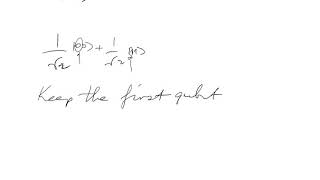 1/√2 |00⟩ + 1/√2 |11⟩
Keep the first qubit